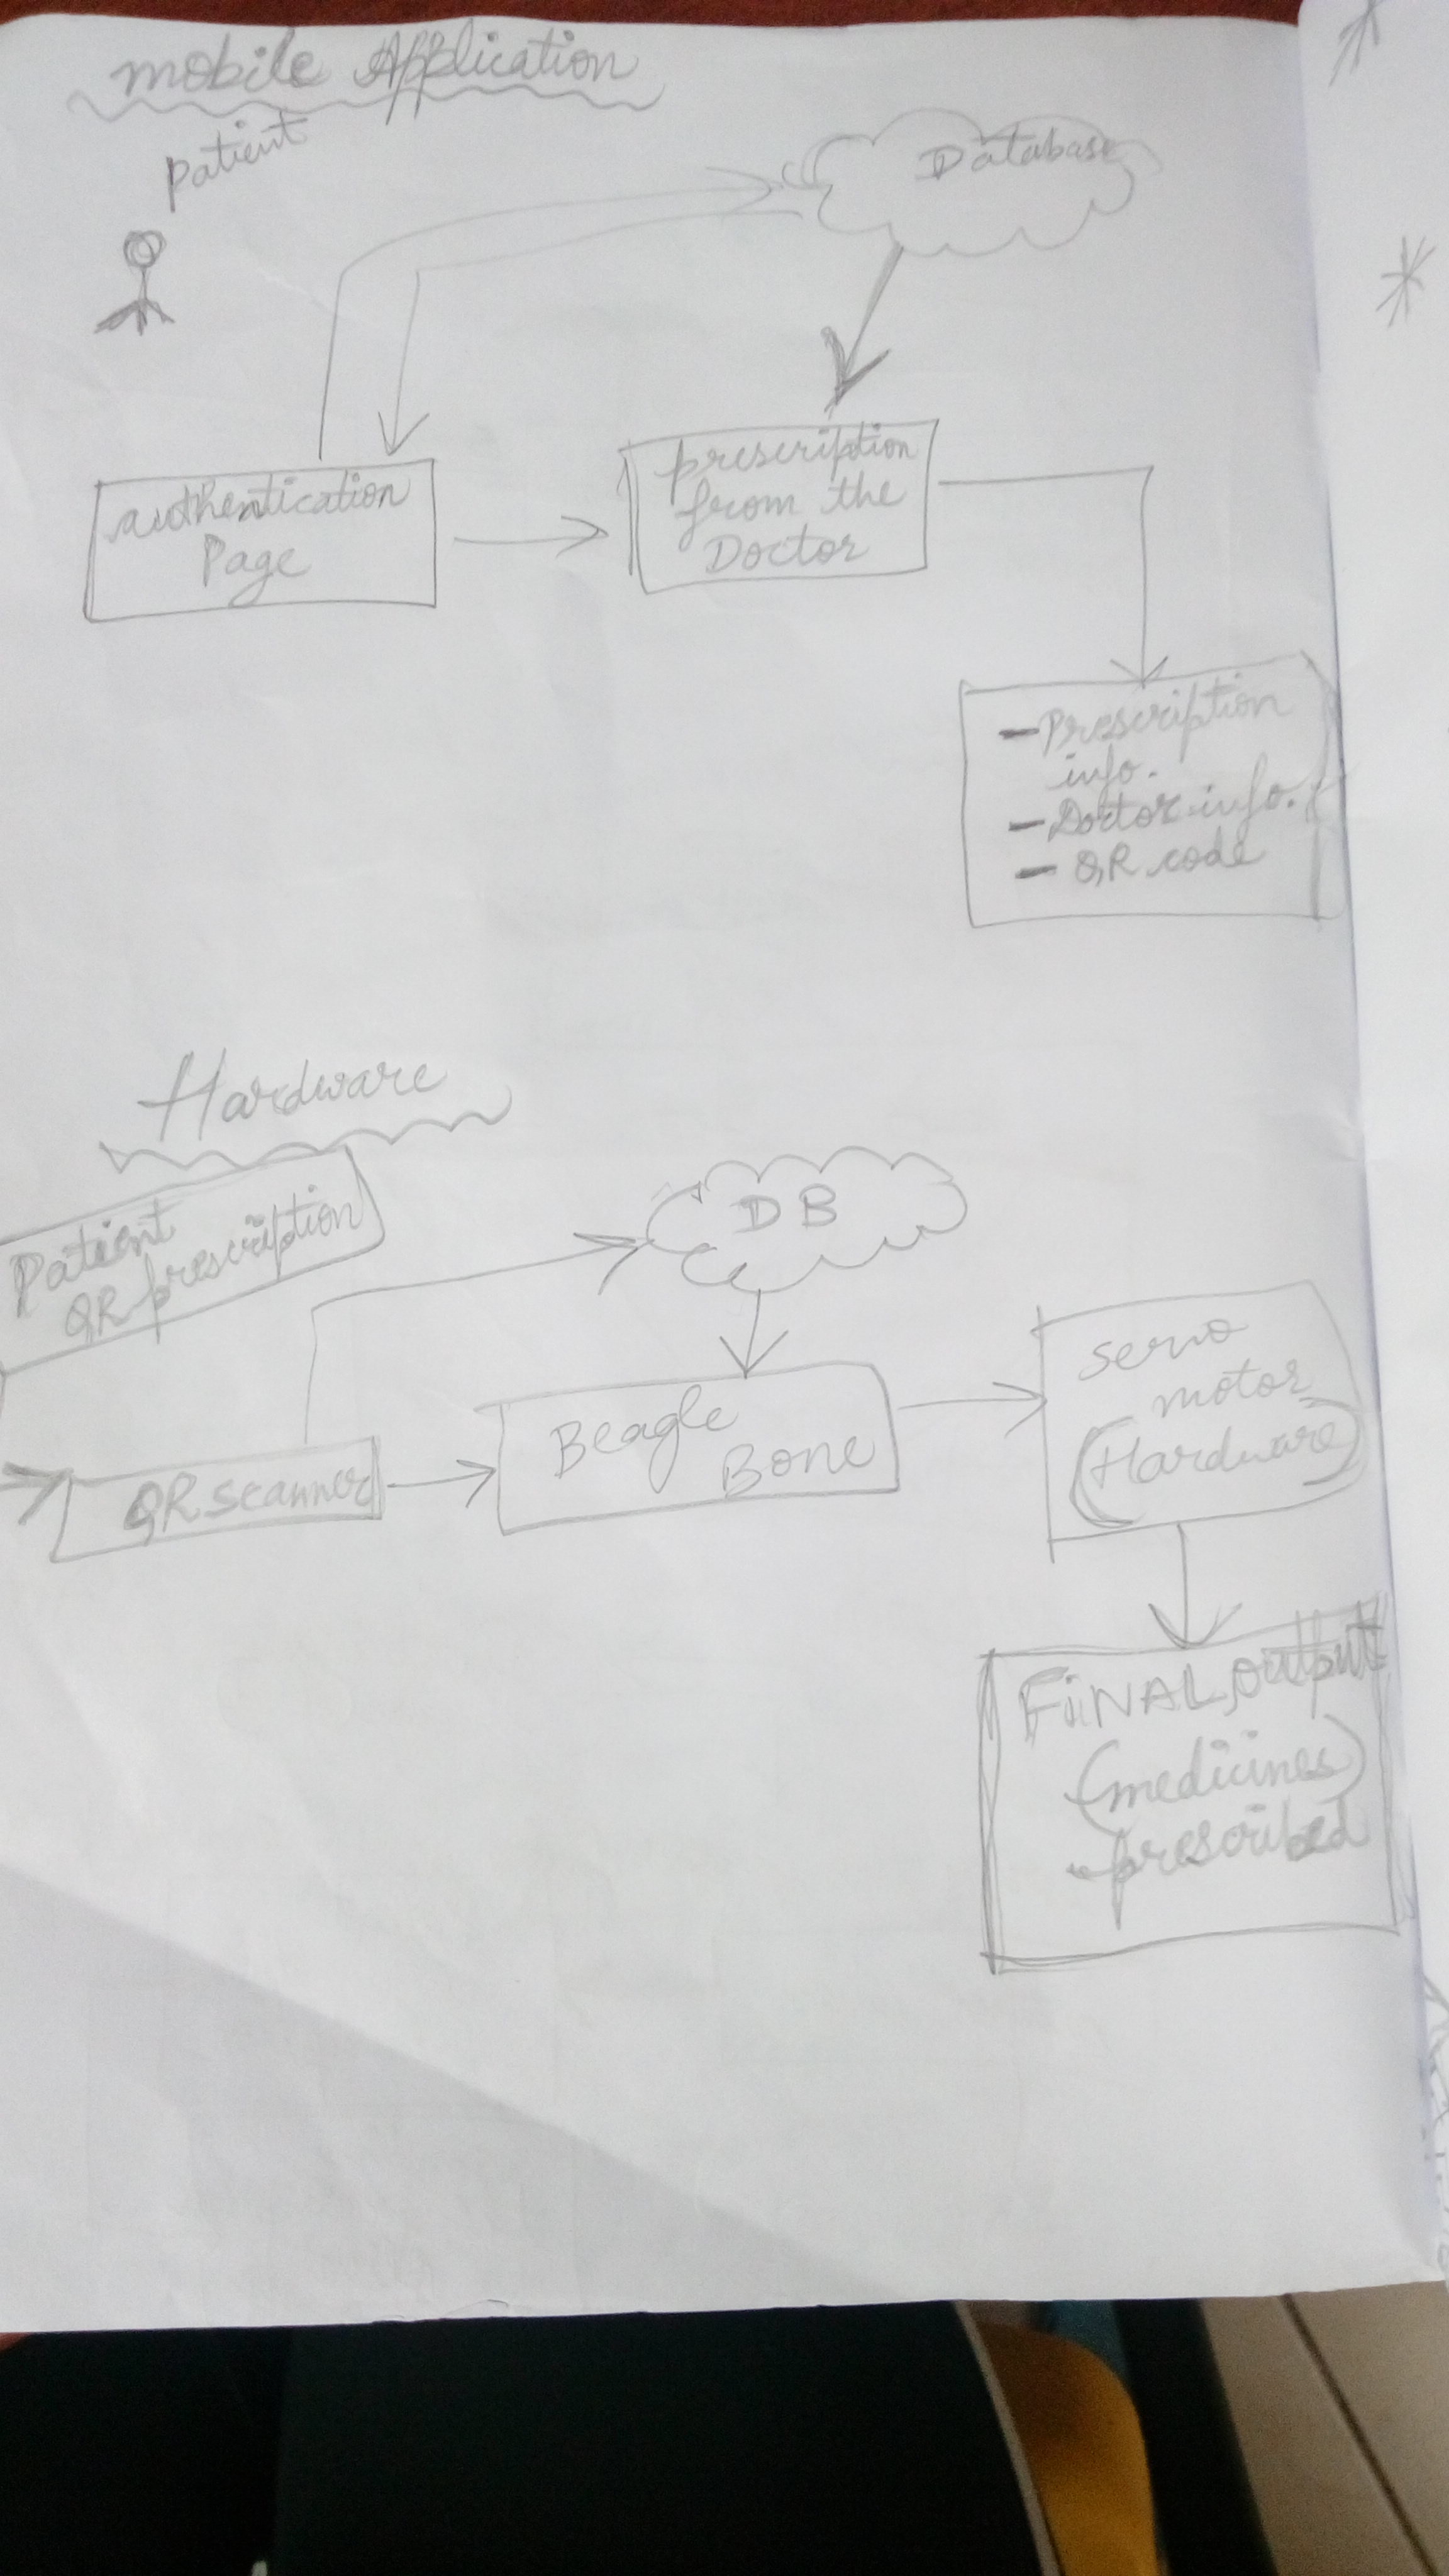 mobile Application
Patient
Database
authentication
Page
prescription
from the
Doctor
- Prescription
info.
- Doctor info.
- QR code
Hardware
Patient
QR prescription
DB
QR scanner
Beagle
Bone
servo
motor
(Hardware)
FiNAL output
(medicines)
prescribed